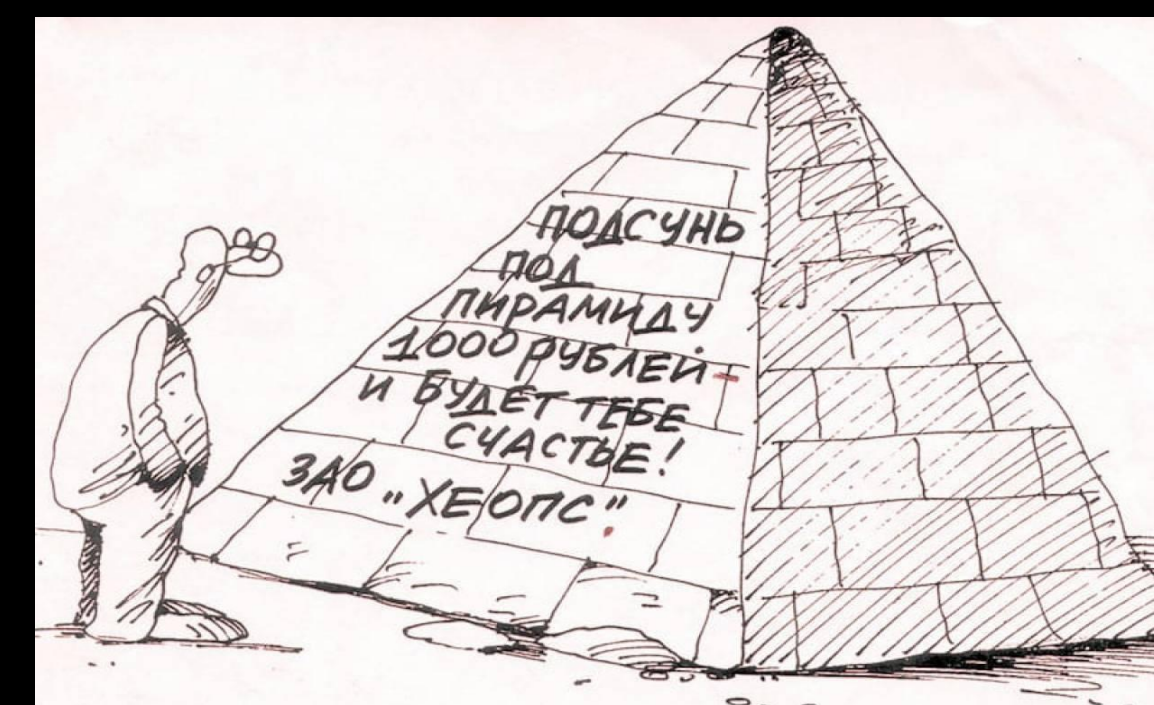 ПОДСУНЬ
ПОД
ПИРАМИДУ
1000 РУБЛЕЙ -
И БУДЕТ ТЕБЕ
СЧАСТЬЕ!
ЗАО „ХЕОПС"